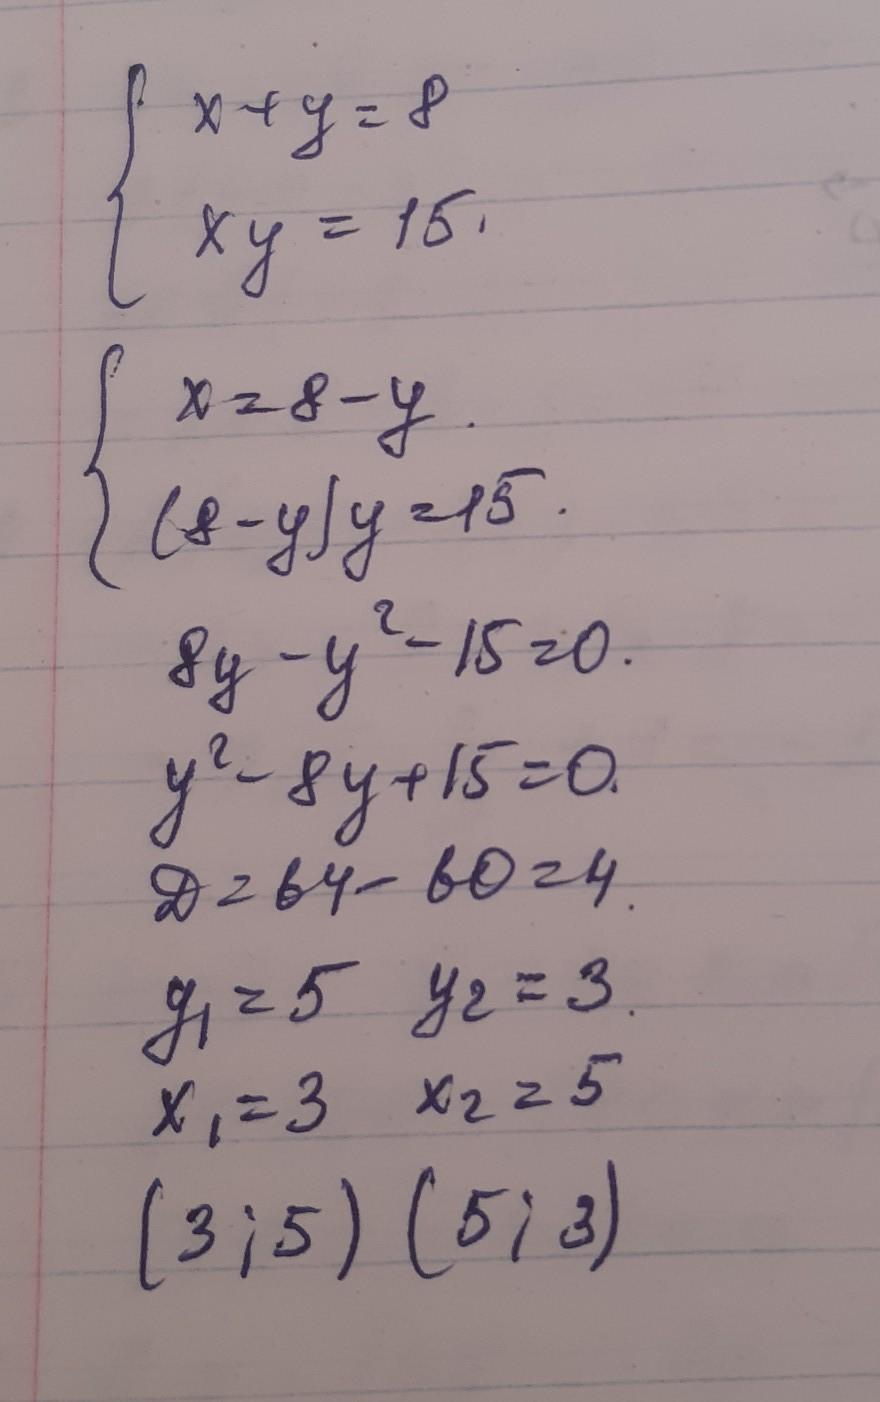 x+y=8
xy=15.
x=8-y.
(8-y)y=15.
8y-y²-15=0.
y²-8y+15=0.
D=64-60=4.
y₁=5 y₂=3.
x₁=3 x₂=5
(3;5) (5;3)